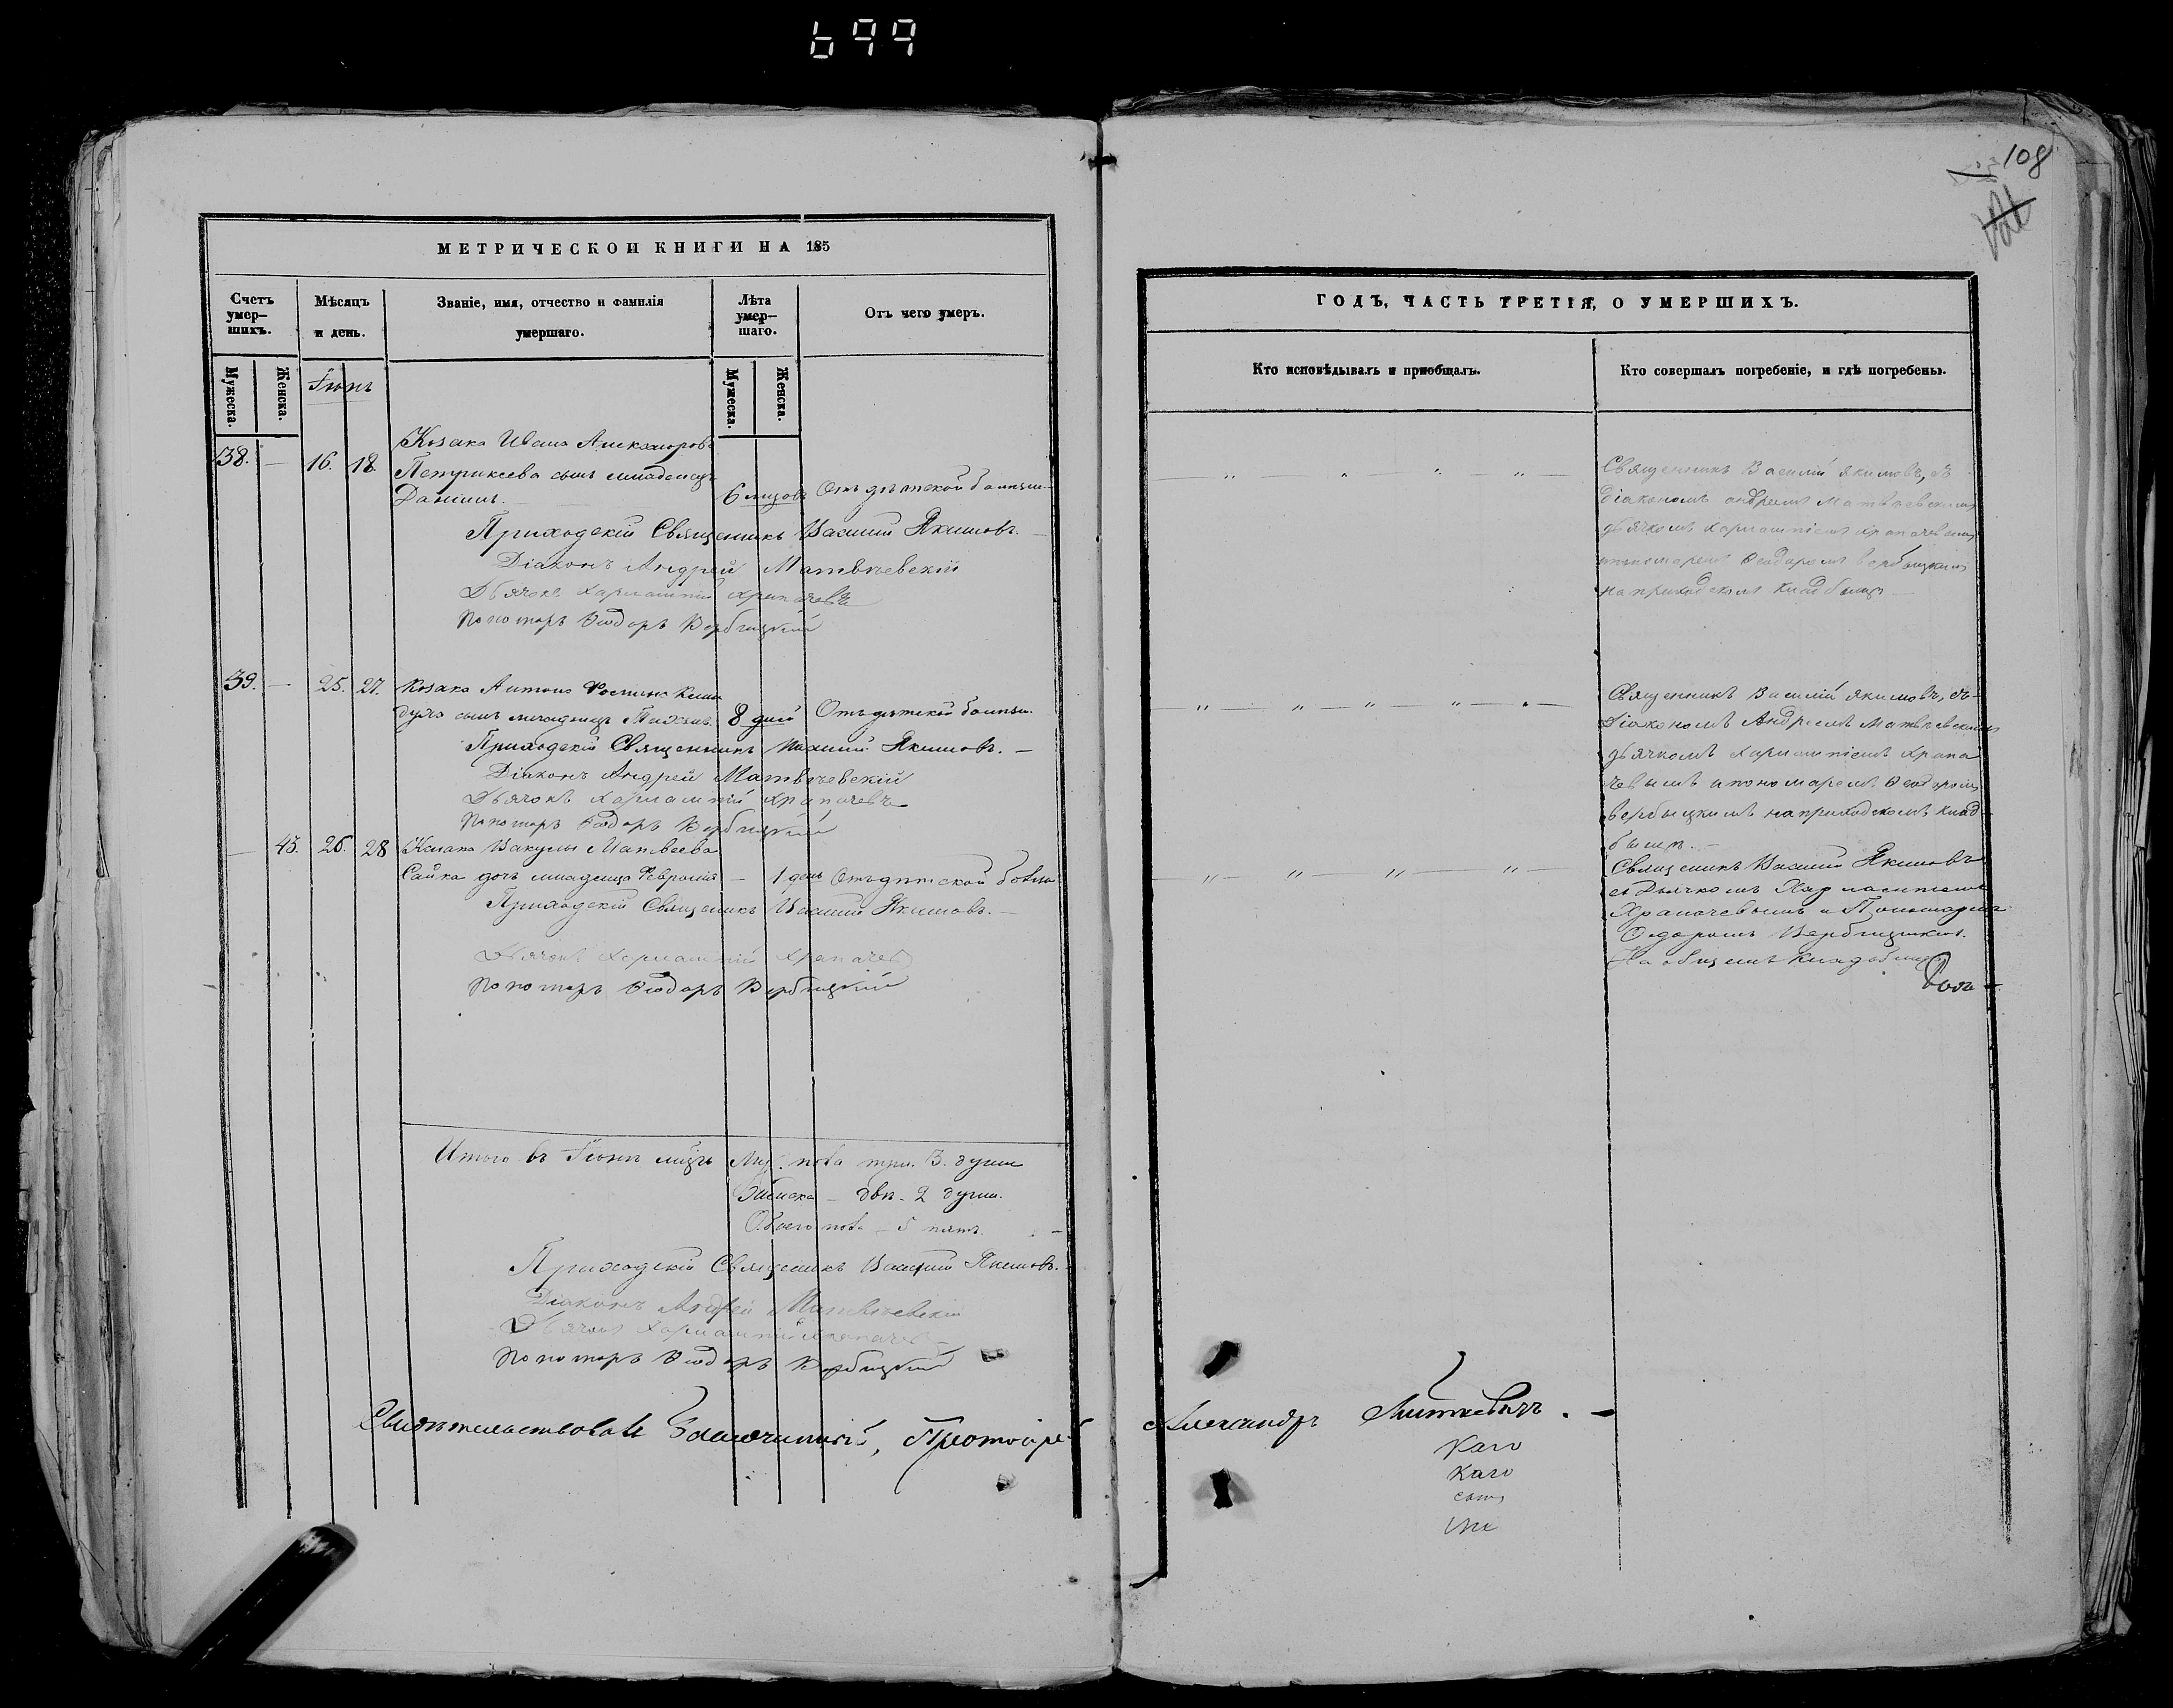 699
108
МЕТРИЧЕСКОЙ КНИГИ НА 185
Счетъ умер-шихъ.
Мѣсяцъ и день.
Званіе, имя, отчество и фамилія умершаго.
Лѣта умер-шаго.
Отъ чего умеръ.
Мужеска.
Женска.
Іюнь
Мужеска.
Женска.
Козака Ивана Александрова
38. — 16. 18.
Петриксева сынъ младенецъ
Даніилъ. 6 мцовъ Отъ дѣтской болѣзни
Приходскій Священникъ Василій Якимовъ.
Діаконъ Андрей Матвѣевскій
Дьячокъ Харлампій Храпачевъ
Пономарь Ѳеодоръ Вербицкій
39. — 25. 27. Козака Антона
сынъ младенецъ 8 дней Отъ дѣтской болѣзни.
Приходскій Священникъ Василій Якимовъ. —
Діаконъ Андрей Матвѣевскій
Дьячокъ Харлампій Храпачевъ
Пономарь Ѳеодоръ Вербицкій
— 45. 26. 28 Козака Вакулы Матвеева
Сайка дочь младенца Февронія — 1 день Отъ дѣтской болѣзни
Приходскій Священникъ Василій Якимовъ. —
Дьячокъ Харлампій Храпачевъ
Пономарь Ѳеодоръ Вербицкій
Итого въ Іюнѣ мцѣ Муж. пола три. 3. души
Женска — двѣ. 2 души.
Обоего пола — 5 пять.
Приходскій Священникъ Василій Якимовъ.
Діаконъ Андрей Матвѣевскій
Дьячокъ Харлампій Храпачевъ
Пономарь Ѳеодоръ Вербицкій
Свидѣтельствовалъ Благочинный, Протоіерей Александръ
ГОДЪ, ЧАСТЬ ТРЕТІЯ, О УМЕРШИХЪ.
Кто исповѣдывалъ и пріобщалъ.
Кто совершалъ погребеніе, и гдѣ погребены.
Священникъ Василій Якимовъ, съ
діакономъ Андреемъ Матвѣевскимъ
дьячкомъ Харлампіемъ Храпачевымъ
пономаремъ Ѳеодоромъ Вербицкимъ
на приходскомъ кладбищѣ
Священникъ Василій Якимовъ, съ
Діакономъ Андреемъ Матвѣевскимъ
дьячкомъ Харлампіемъ Храпа
чевымъ и пономаремъ Ѳеодоромъ
Вербицкимъ на приходскомъ клад
бищѣ. —
Священникъ Василій Якимовъ
съ Дьячкомъ Харлампіемъ
Храпачевымъ и Пономаремъ
Ѳедоромъ Вербицкимъ.
На общемъ кладбищѣ